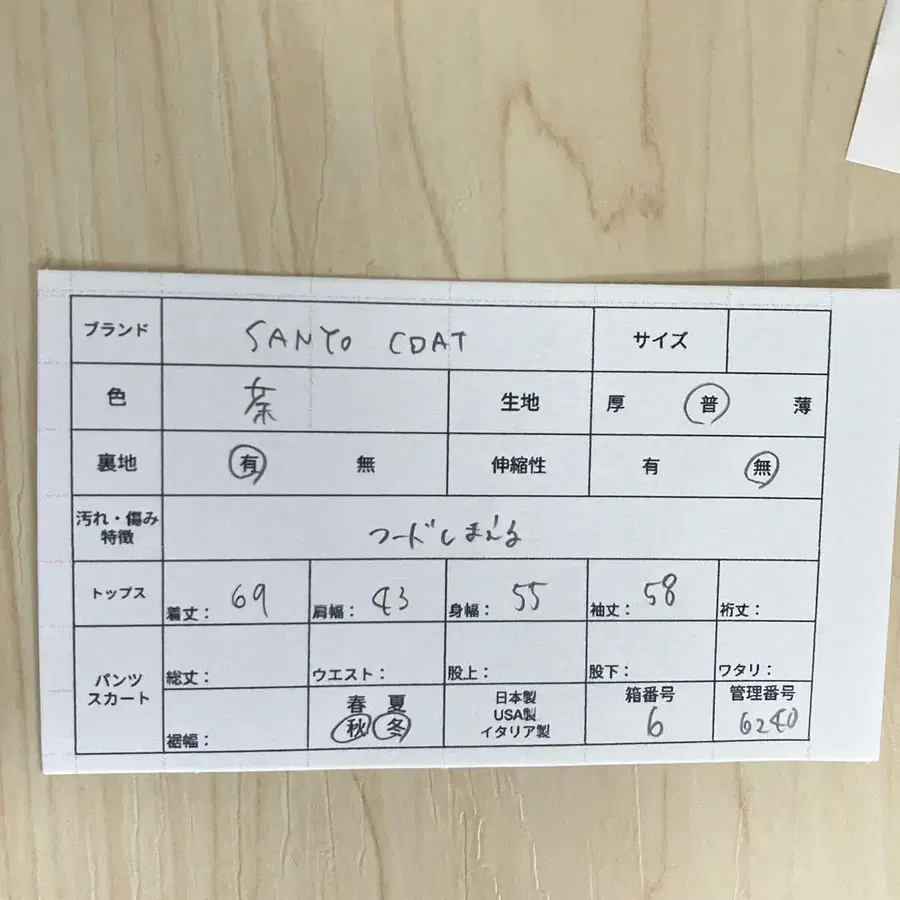 ブランド SANYO COAT サイズ
色 茶 生地 厚 普 薄
裏地 有 無 伸縮性 有 無
汚れ・傷み
特徴 フードしまえる
トップス 着丈: 69 肩幅: 43 身幅: 55 袖丈: 58 裄丈:
パンツ
スカート 総丈: ウエスト: 股上: 股下: ワタリ:
裾幅: 春 夏
秋 冬
日本製
USA製
イタリア製
箱番号
6
管理番号
6240